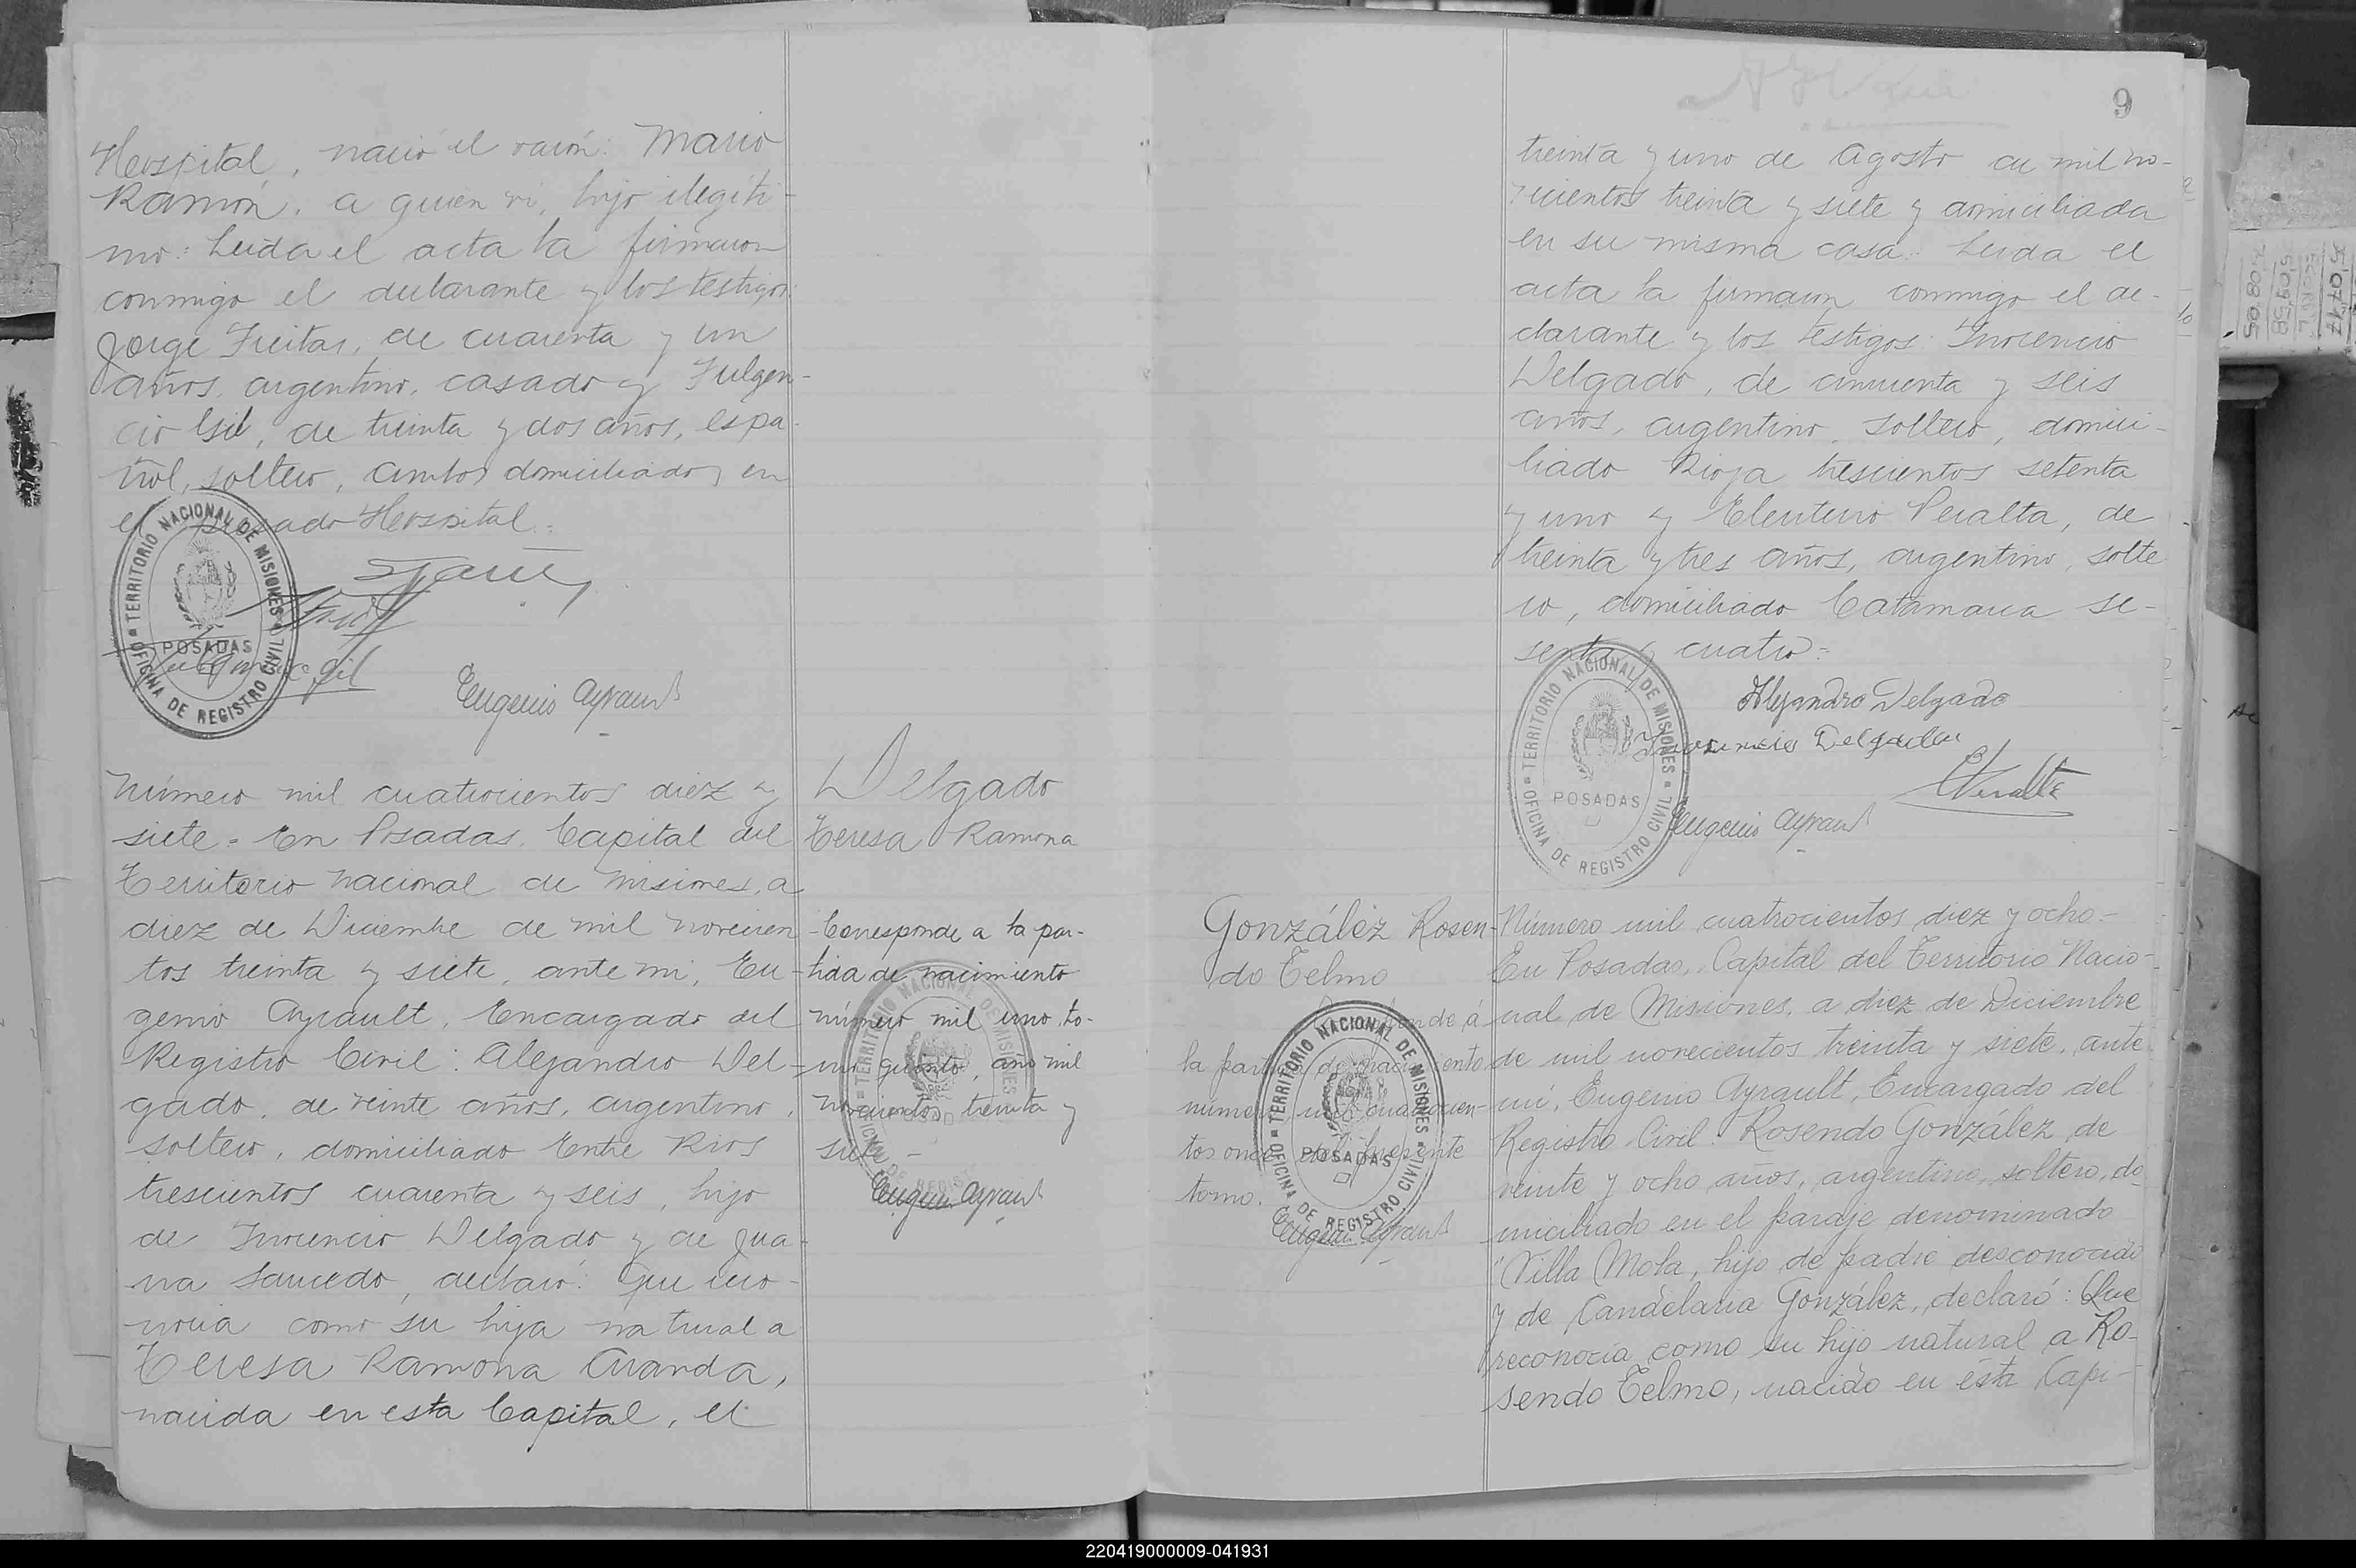 Hospital, nació el varón: Mario
Ramón, a quien vi, hijo ilegíti-
mo: Leida el acta la firmaron
conmigo el declarante y los testigos:
Jorge Freitas, de cuarenta y un
años, argentino, casado y Fulgen-
cio Gil, de treinta y dos años, espa-
ñol, soltero, ambos domiciliados en
el Hospital.=
TERRITORIO NACIONAL DE MISIONES
POSADAS
OFICINA DE REGISTRO CIVIL
Gil
Eugenio Ayrault
Número mil cuatrocientos diez y
siete = En Posadas, Capital del
Territorio Nacional de Misiones, a
diez de Diciembre de mil novecien
tos treinta y siete, ante mi, Eu-
genio Ayrault, Encargado del
Registro Civil: Alejandro Del-
gado, de veinte años, argentino,
soltero, domiciliado Entre Rios
trescientos cuarenta y seis, hijo
de Inocencio Delgado y de Jua-
na Saucedo, declaró: Que reco-
nocia como su hija natural a
Teresa Ramona Aranda,
nacida en esta Capital, el
Delgado
Teresa Ramona
Corresponde a la par-
tida de nacimiento
número mil uno, to-
mo quinto, año mil
novecientos treinta y
siete -
TERRITORIO NACIONAL DE MISIONES
POSADAS
OFICINA DE REGISTRO CIVIL
Eugenio Ayrault
9
treinta y uno de Agosto de mil no-
vecientos treinta y siete y domiciliada
en su misma casa. Leida el
acta la firmaron conmigo el de-
clarante y los testigos: Inocencio
Delgado, de cincuenta y seis
años, argentino, soltero, domici-
liado Rioja trescientos setenta
y uno y Eleuterio Peralta, de
treinta y tres años, argentino, solte
ro, domiciliado Catamarca se-
senta y cuatro =
TERRITORIO NACIONAL DE MISIONES
POSADAS
OFICINA DE REGISTRO CIVIL
Alejandro Delgado
Inocencio Delgado
E Peralta
Eugenio Ayrault
González Rosen-
do Telmo
Corresponde á
la partida de nacimiento
número mil cuatrocien-
tos once del presente
tomo.
TERRITORIO NACIONAL DE MISIONES
POSADAS
OFICINA DE REGISTRO CIVIL
Eugenio Ayrault
Número mil cuatrocientos diez y ocho.-
En Posadas, Capital del Territorio Nacio-
nal de Misiones, a diez de Diciembre
de mil novecientos treinta y siete, ante
mi, Eugenio Ayrault, Encargado del
Registro Civil: Rosendo González, de
veinte y ocho años, argentino, soltero, do
miciliado en el paraje denominado
Villa Mola, hijo de padre desconocido
y de Candelaria González, declaró: Que
reconocía como su hijo natural a Ro-
sendo Telmo, nacido en ésta Capi-
220419000009-041931